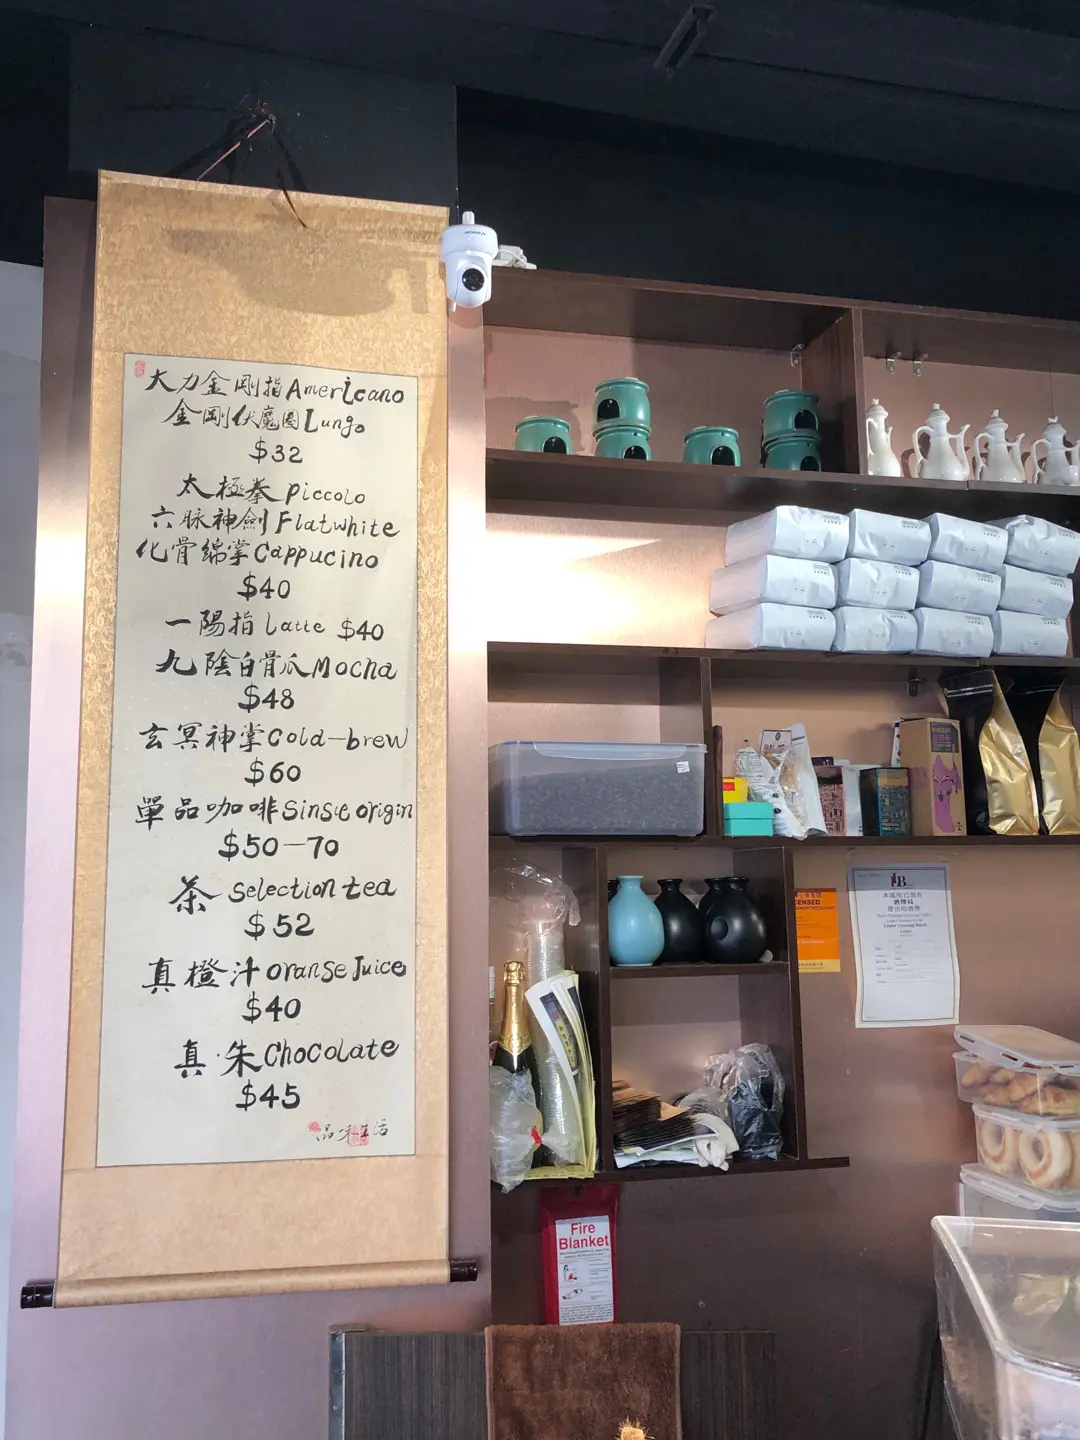 大力金剛指Americano
金剛伏魔圈Lungo
$32
太極拳 piccolo
六脉神劍Flatwhite
化骨綿掌Cappucino
$40
一陽指 Latte $40
九陰白骨爪Mocha
$48
玄冥神掌Cold-brew
$60
單品咖啡Single origin
$50-70
茶 selection tea
$52
真橙汁orange Juice
$40
真·朱Chocolate
$45
品味生活
本處所已領有
酒牌局
發出的酒牌
Liquor Licensing Board
CENSED
Fire
Blanket